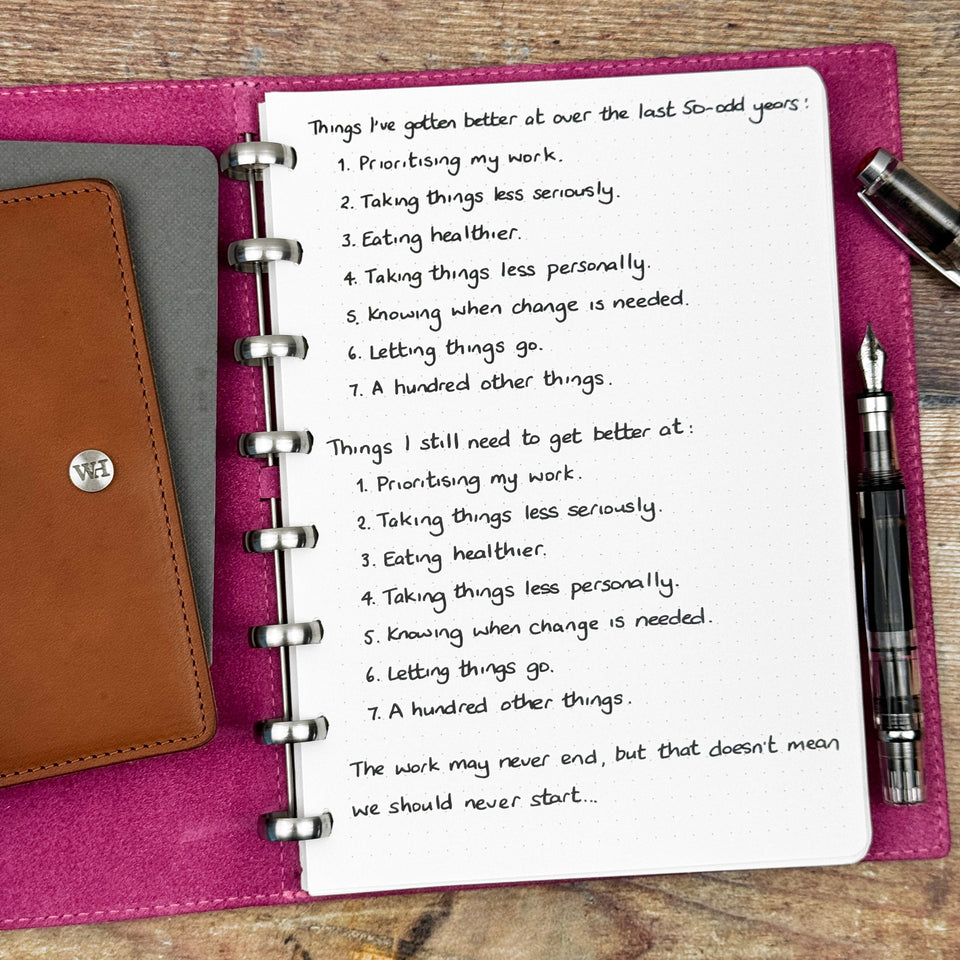 WH
Things I've gotten better at over the last 50-odd years:
1. Prioritising my work.
2. Taking things less seriously.
3. Eating healthier.
4. Taking things less personally.
5. Knowing when change is needed.
6. Letting things go.
7. A hundred other things.
Things I still need to get better at:
1. Prioritising my work.
2. Taking things less seriously.
3. Eating healthier.
4. Taking things less personally.
5. Knowing when change is needed.
6. Letting things go.
7. A hundred other things.
The work may never end, but that doesn't mean
we should never start...